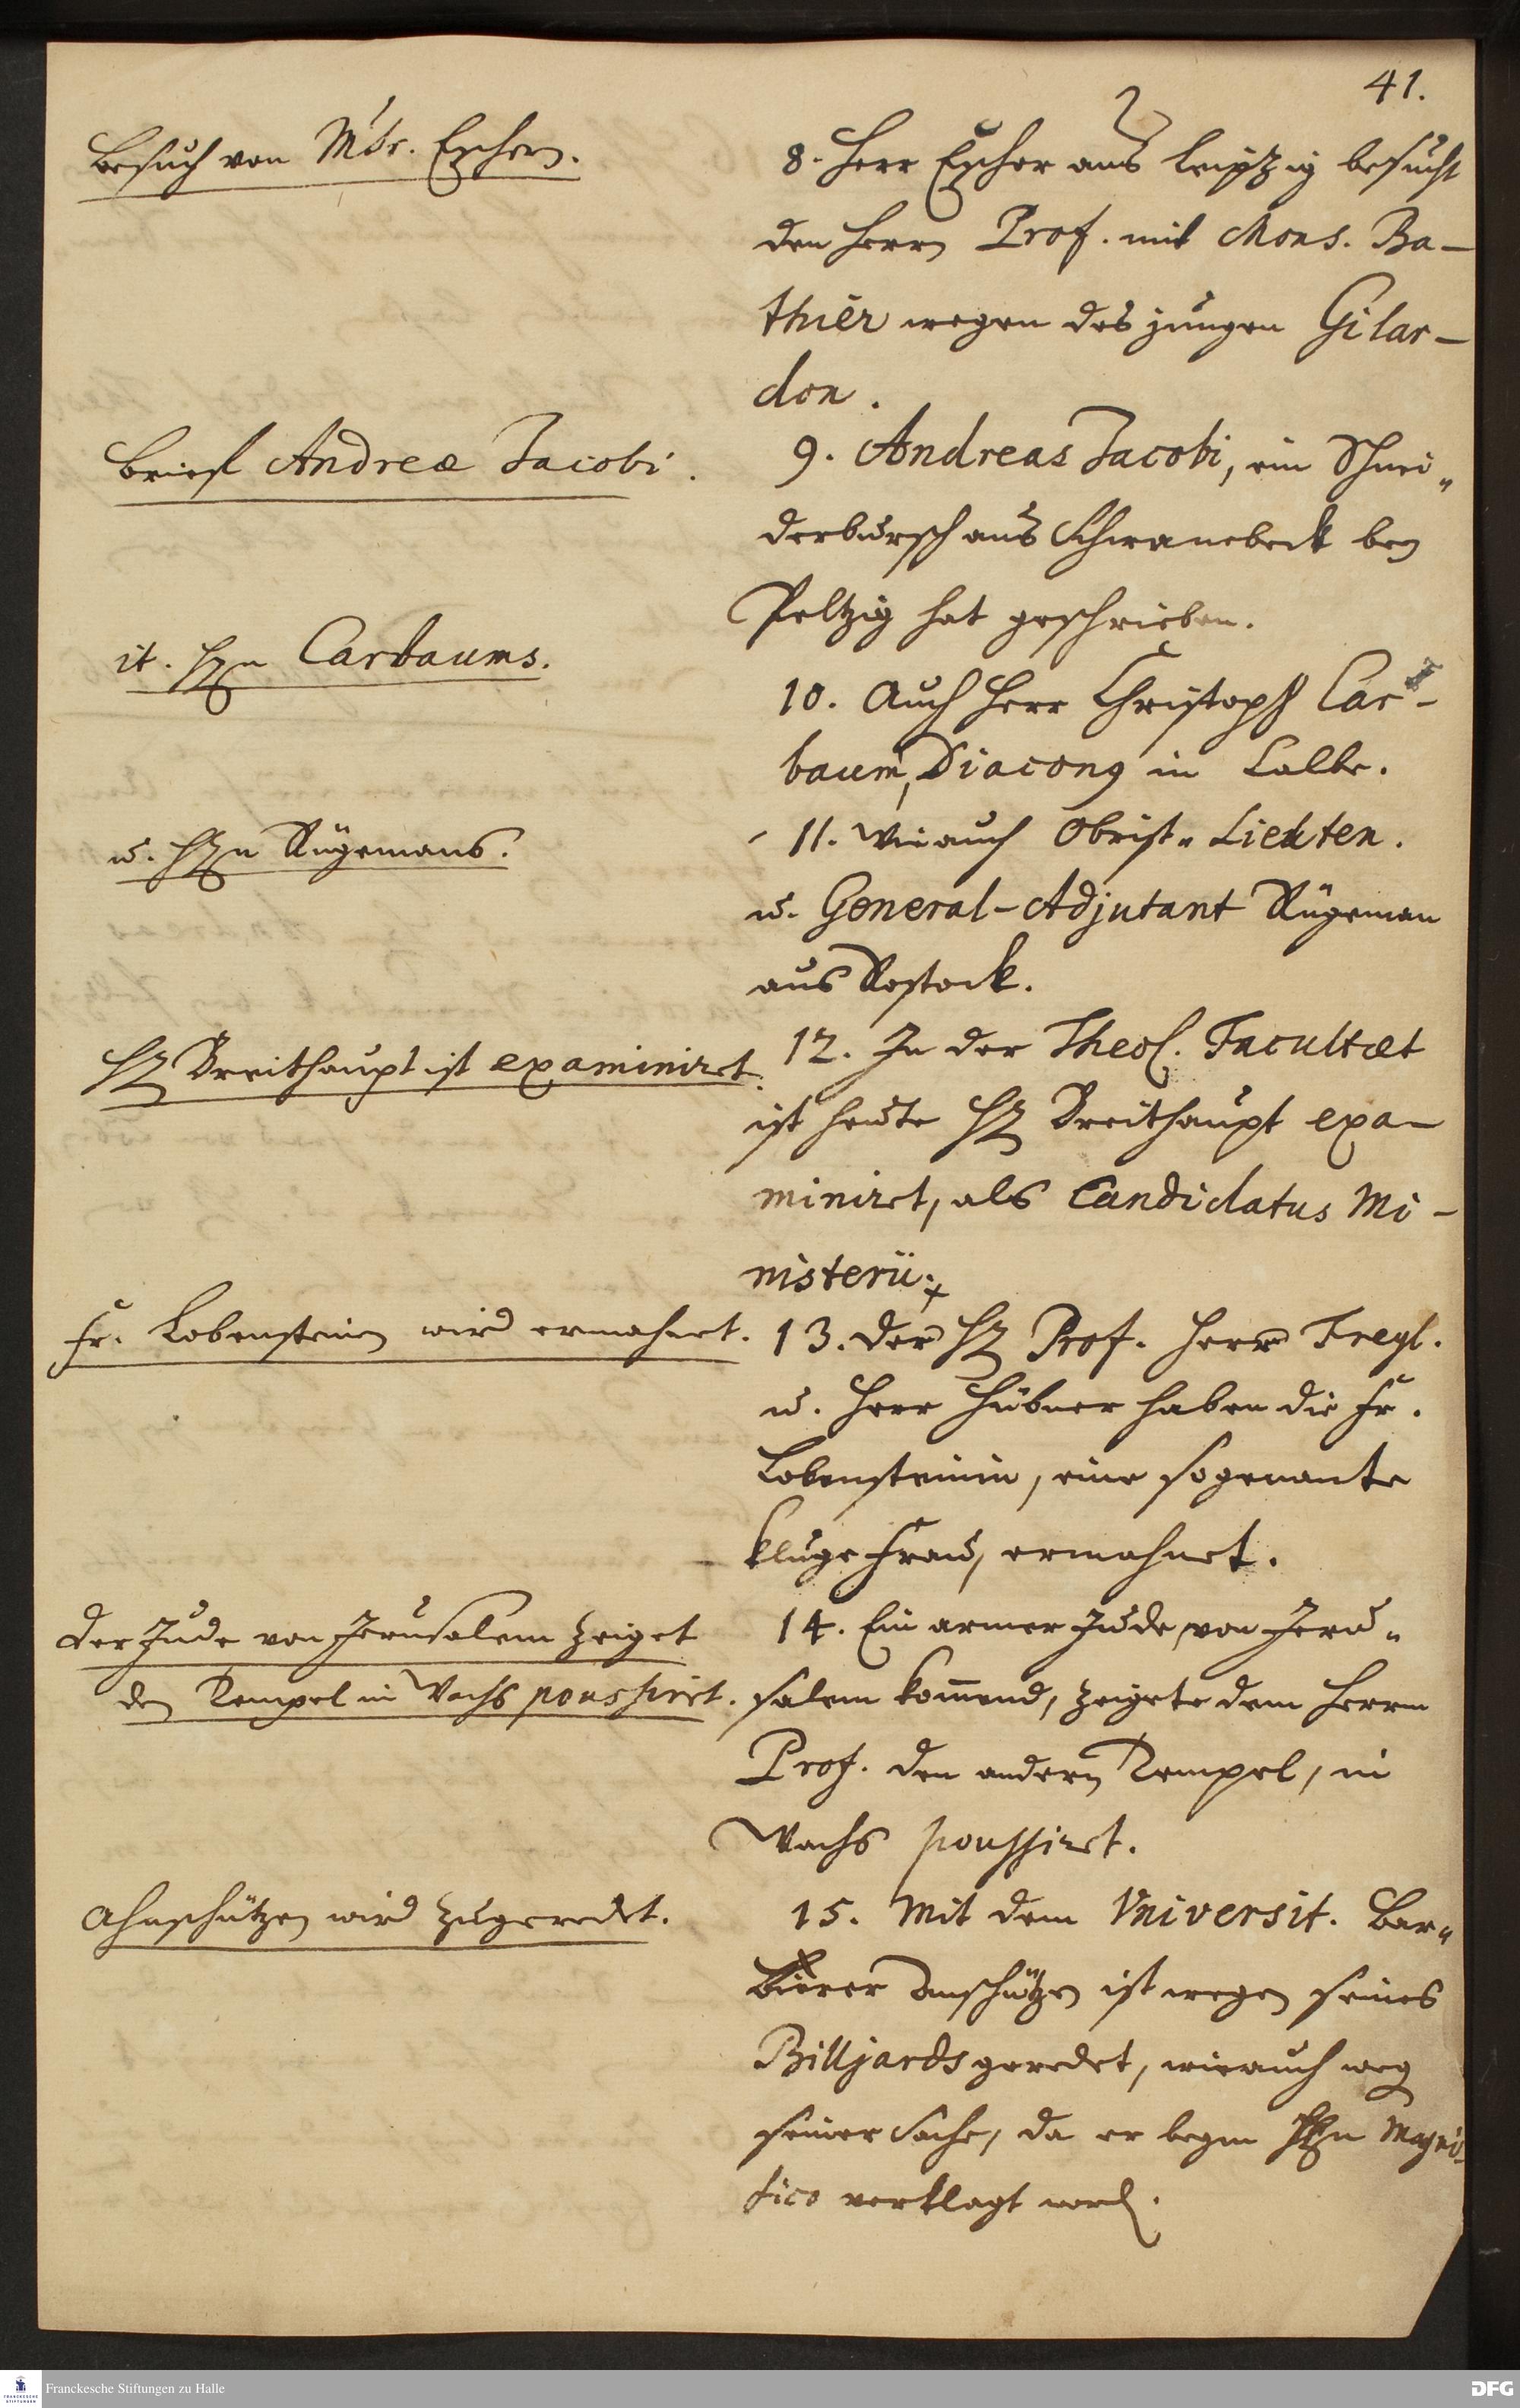 41.
Besuch von Msr. Eschern.
8. Herr Escher aus Leipzig besucht
den Herrn Prof. mit Mons. Ba-
thier wegen des jungen Gilar-
don.
Brief Andreæ Jacobi.
9. Andreas Jacobi, ein Schnei„
derbursch aus Schwanebeck bey
Peltzig hat geschrieben.
it. Hrn Carbaums.
10. Auch Herr Christoph Car-
baum, Diaconus in Calbe.
u. Hrn Rügemans.
11. Wie auch Obrist-Lieuten.
u. General-Adjutant Rügeman
aus Rostock.
Hr Breithaupt ist examiniret.
12. In der Theol. Facultæt
ist heute Hr Breithaupt exa-
miniret, als Candidatus Mi-
nisterii.
Fr. Lobensteinin wird ermahnet.
13. Der Hr Prof. Herr Freyl.
u. Herr Hübner haben die Fr.
Lobensteinin, eine sogenante
kluge Frau, ermahnet.
Der Jude von Jerusalem zeiget
den Tempel in Wachs poussiret.
14. Ein armer Jude, von Jeru„
salem kom̄end, zeigete dem Herrn
Prof. den andern Tempel, in
Wachs poussiret.
Ahnschützen wird zugeredet.
15. Mit dem Universit. Bar„
bierer Anschützen ist wegen seines
Billjards geredet, wie auch weg
seiner Sache, da er beym Hrn Magni-
fico verklagt word.
Franckesche Stiftungen zu Halle
DFG